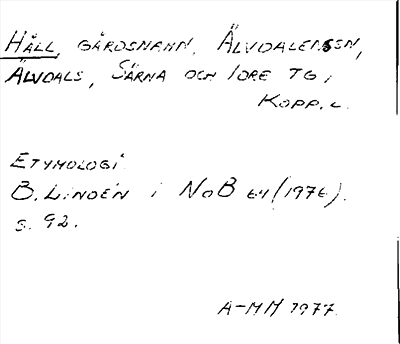 HÅLL, GÅRDSNAMN, ÄLVDALENS SN,
ÄLVDALS, SÄRNA OCH IDRE TG,
KOPP. L.
ETYMOLOGI
B. LINDÉN I NoB 64 (1976).
S. 92.
A-MM 1977.